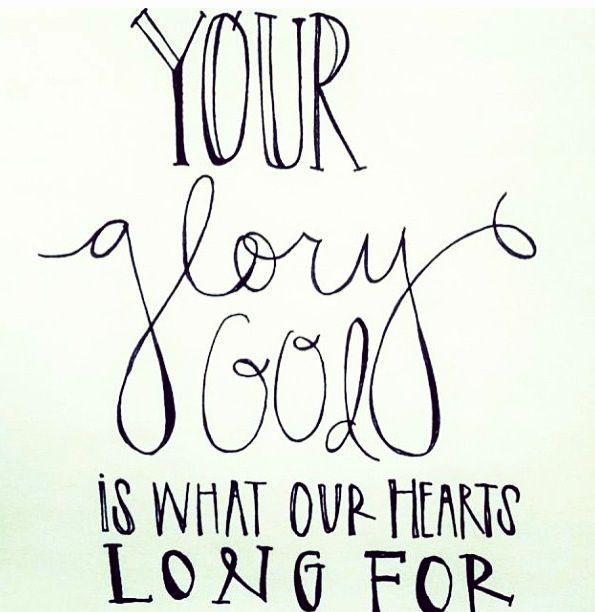 YOUR
glory
GOd
iS WHAT OUR HEARTS
LONG FOR